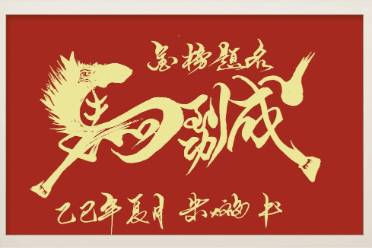 金榜题名
馬到成功
乙巳年夏月 书